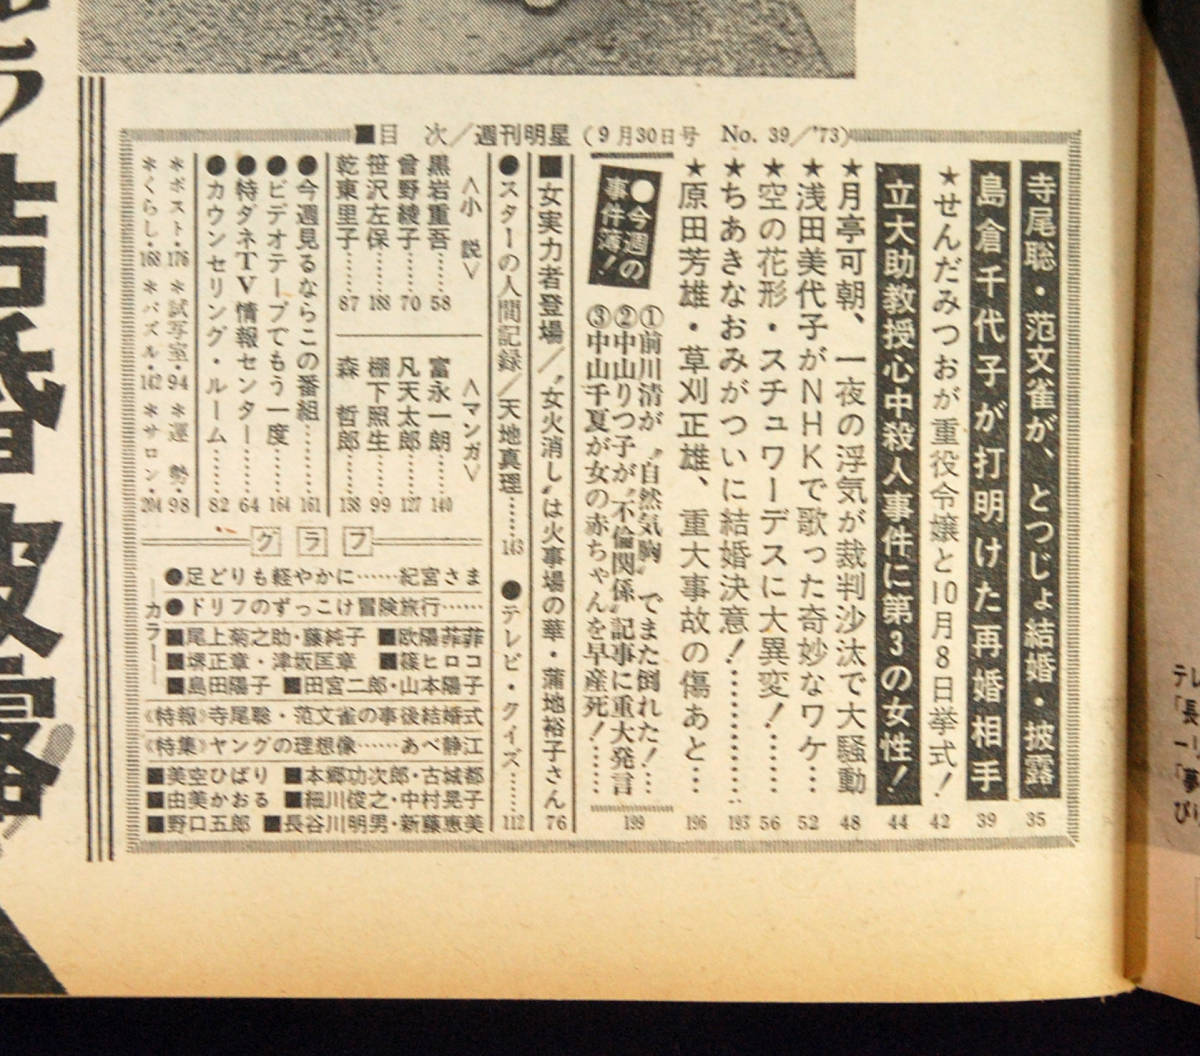 ■目 次／週刊明星(9月30日号 No. 39／'73)
寺尾聡・范文雀が、とつじょ結婚・披露 35
島倉千代子が打明けた再婚相手 39
★せんだみつおが重役令嬢と10月8日挙式! 42
立大助教授心中殺人事件に第3の女性! 44
★月亭可朝、一夜の浮気が裁判沙汰で大騒動 48
★浅田美代子がNHKで歌った奇妙なワケ… 52
★空の花形・スチュワーデスに大異変!…… 56
★ちあきなおみがついに結婚決意!………… 193
★原田芳雄・草刈正雄、重大事故の傷あと… 196
●今週の事件簿!
①前川清が〝自然気胸〟でまた倒れた!…
②中山りつ子が〝不倫関係〟記事に重大発言
③中山千夏が女の赤ちゃんを早産死!……
199
■女実力者登場／〝女火消し〟は火事場の華・蒲地裕子さん 76
●スターの人間記録／天地真理…… 143
●テレビ・クイズ…… 112
<小 説>
黒岩重吾…… 58
曾野綾子…… 70
笹沢左保…… 188
乾東里子…… 87
<マンガ>
富永一朗… 140
凡天太郎… 127
棚下照生… 99
森 哲郎… 138
●今週見るならこの番組…… 161
●ビデオテープでもう一度…… 164
●特ダネTV情報センター…… 64
●カウンセリング・ルーム…… 82
＊ポスト・176 ＊試写室・94 ＊運 勢・98
＊くらし・168 ＊パズル・142 ＊サロン・204
グラフ
カラー
●足どりも軽やかに……紀宮さま
●ドリフのずっこけ冒険旅行……
■尾上菊之助・藤純子 ■欧陽菲菲
■堺正章・津坂匡章 ■篠ヒロコ
■島田陽子 ■田宮二郎・山本陽子
《特報》寺尾聡・范文雀の事後結婚式
《特集》ヤングの理想像……あべ静江
■美空ひばり ■本郷功次郎・古城都
■由美かおる ■細川俊之・中村晃子
■野口五郎 ■長谷川明男・新藤恵美